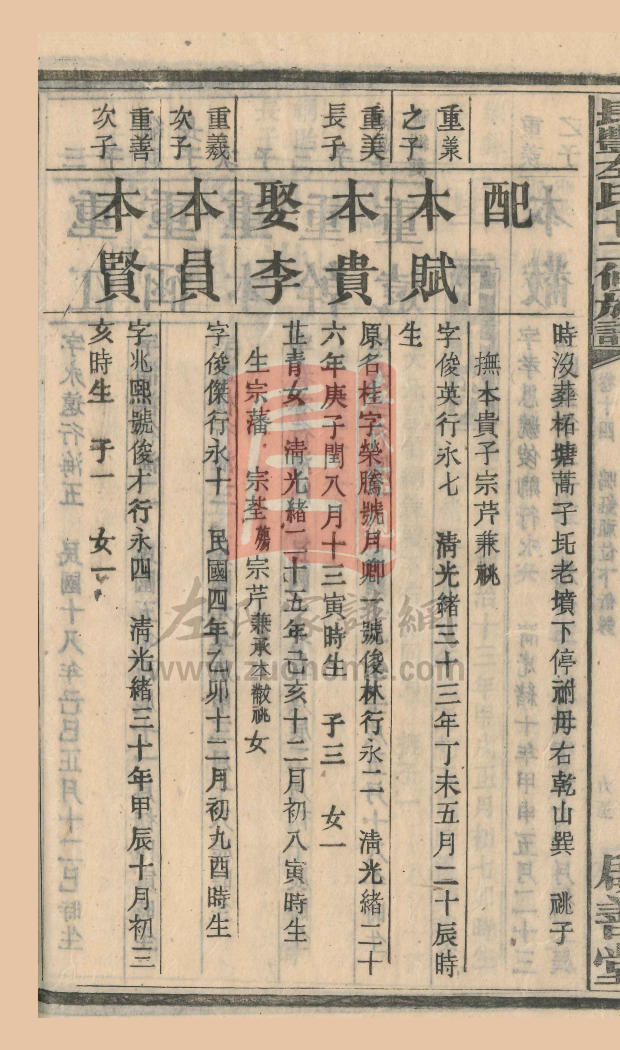 時沒葬柘塘蒿子圫老墳下停祔母右乾山巽 祧子
配
撫本貴子宗芹兼祧
重兼之子
本賦
字俊英行永七 清光緒三十三年丁未五月二十辰時
生
重美長子
本貴
原名桂字榮騰號月卿一號俊林行永二 清光緒二十
六年庚子閏八月十三寅時生 子三 女一
娶李
芷青女 清光緒二十五年己亥十二月初八寅時生
生宗藩 宗荃殤 宗芹兼承本黻祧 女
重羲次子
本員
字俊傑行永十 民國四年乙卯十二月初九酉時生
重善次子
本賢
字兆熙號俊才行永四 清光緒三十年甲辰十月初三
亥時生 子一 女一
左氏家譜網
www.zuohome.com